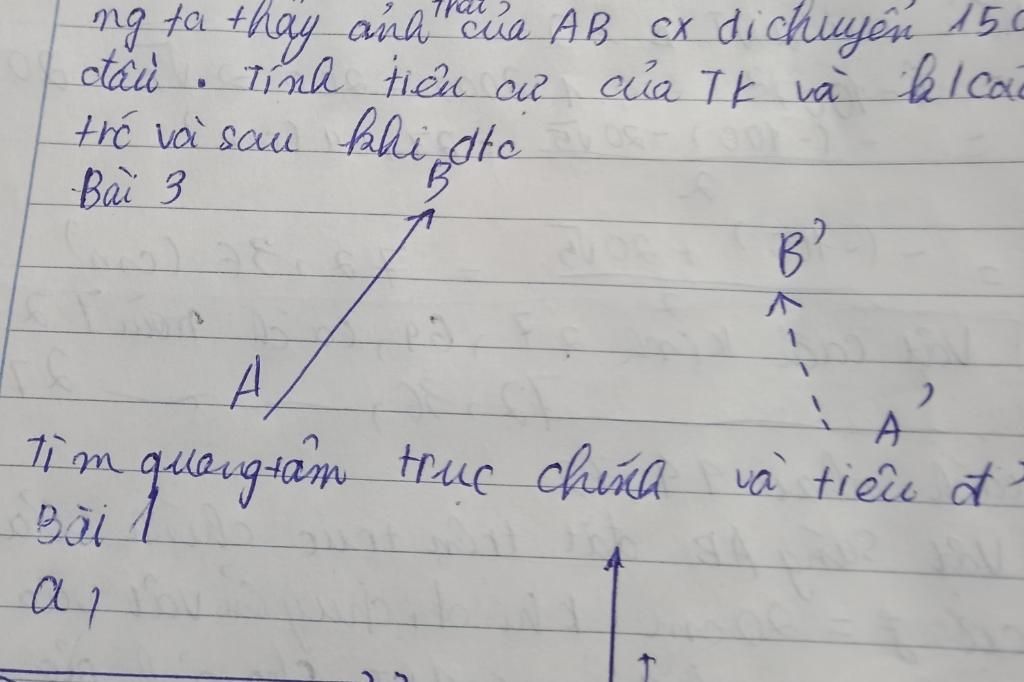 ng ta thấy ảnh của AB cx di chuyển 150
trái
đầu. Tính tiêu cự của TK và k/cá
trc và sau khi d/c
Bài 3
B
B'
A
A'
Tìm quang tâm trục chính và tiêu đ
Bài 1
a,